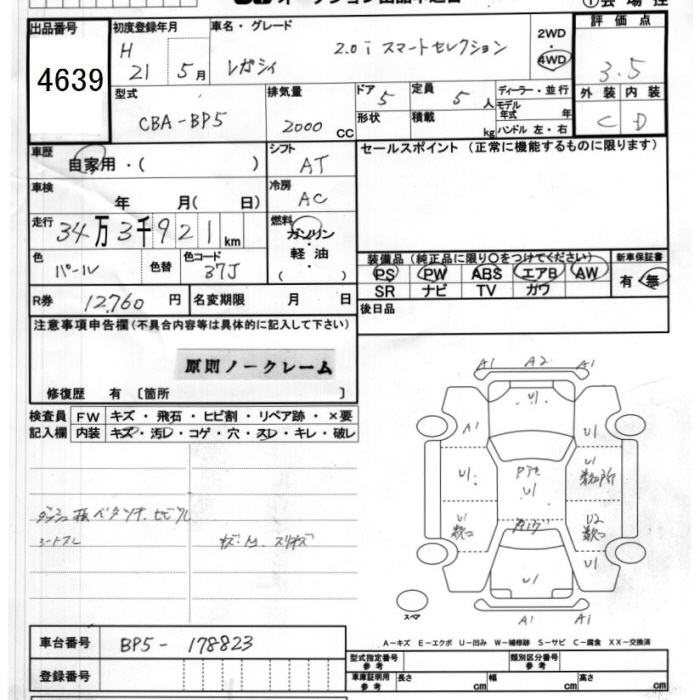 オークション出品申込書
①会場控
出品番号
4639
初度登録年月
H
21 5 月
車名・グレード
2.0i スマートセレクション
レガシィ
2WD
・
4WD
評価点
3.5
外装 内装
C D
型式
CBA-BP5
排気量
2000 CC
ドア
5
定員
5 人
形状
積載
kg
ディーラー・並行
モデル年式 年
ハンドル 左・右
車歴
自家用・( )
シフト
AT
セールスポイント (正常に機能するものに限ります)
車検
年 月( 日)
冷房
AC
走行
34万3千921km
燃料
ガソリン
・
軽油
( )
色
パール
色替
色コード
37J
装備品 (純正品に限り〇をつけてください)
新車保証書
PS PW ABS エアB AW
有・無
SR ナビ TV カワ
R券 12,760 円
名変期限 月 日
後日品
注意事項申告欄(不具合内容等は具体的に記入して下さい)
原則ノークレーム
修復歴 有〔箇所 〕
検査員
記入欄
FW キズ・飛石・ヒビ割・リペア跡・×要
内装 キズ・汚レ・コゲ・穴・スレ・キレ・破レ
A1 A2 A1
U1
A1
U1
U1
U1
U1
U1
U1
U2
U1
U1
A1 A1
スペア
A-キズ E-エクボ U-凹み W-補修跡 S-サビ C-腐食 XX-交換済
車台番号
BP5-178823
登録番号
型式指定番号
参考
類別区分番号
参考
車庫証明用
参考
長さ cm
幅 cm
高さ cm